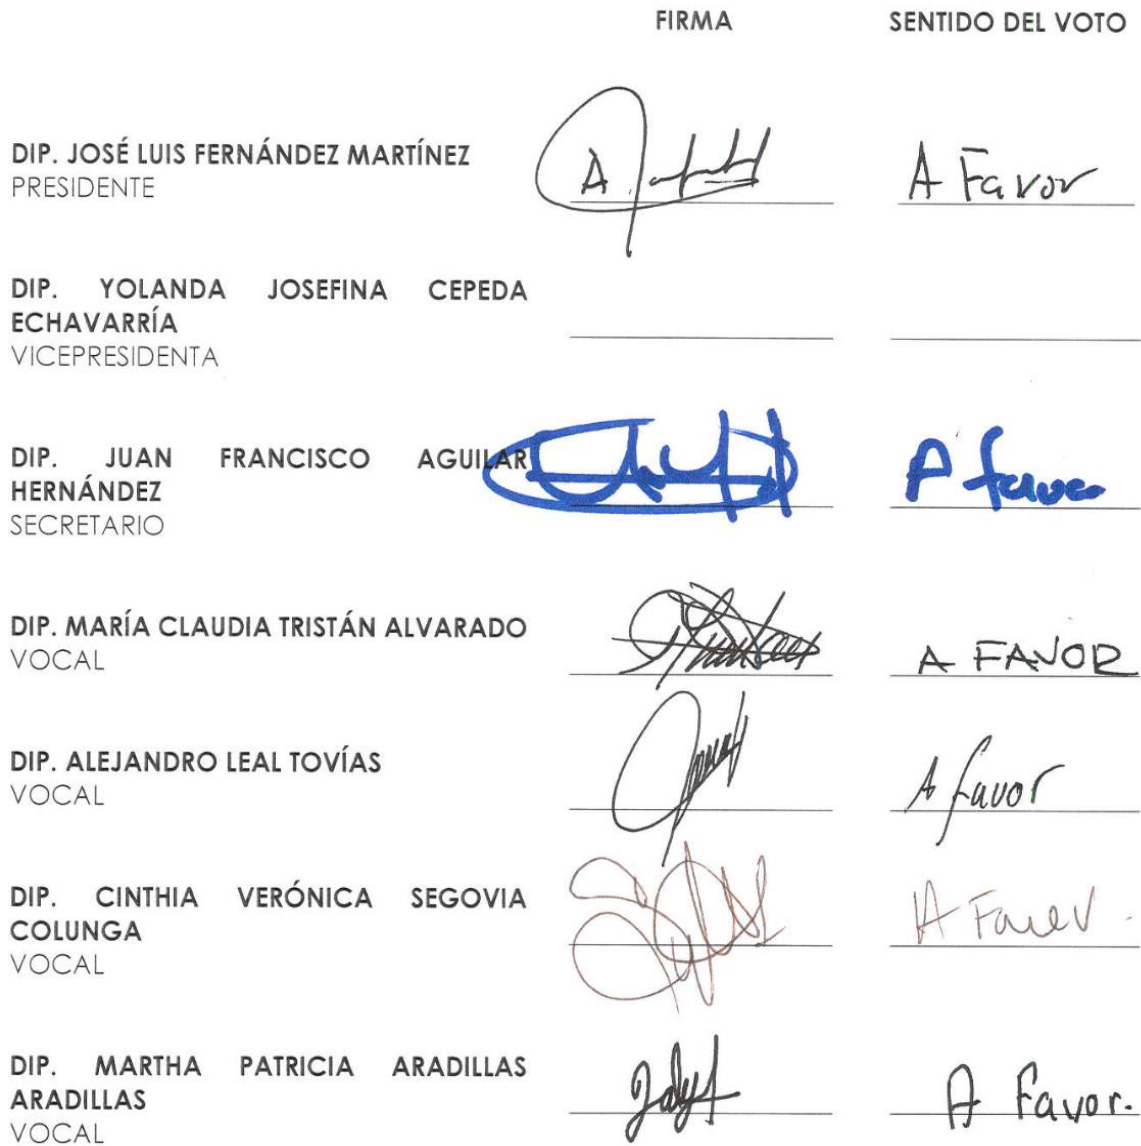 FIRMA SENTIDO DEL VOTO
DIP. JOSÉ LUIS FERNÁNDEZ MARTÍNEZ
PRESIDENTE
A Favor
DIP. YOLANDA JOSEFINA CEPEDA
ECHAVARRÍA
VICEPRESIDENTA
DIP. JUAN FRANCISCO AGUILAR
HERNÁNDEZ
SECRETARIO
A favor
DIP. MARÍA CLAUDIA TRISTÁN ALVARADO
VOCAL
A FAVOR
DIP. ALEJANDRO LEAL TOVÍAS
VOCAL
A favor
DIP. CINTHIA VERÓNICA SEGOVIA
COLUNGA
VOCAL
A Favor.
DIP. MARTHA PATRICIA ARADILLAS
ARADILLAS
VOCAL
A Favor.